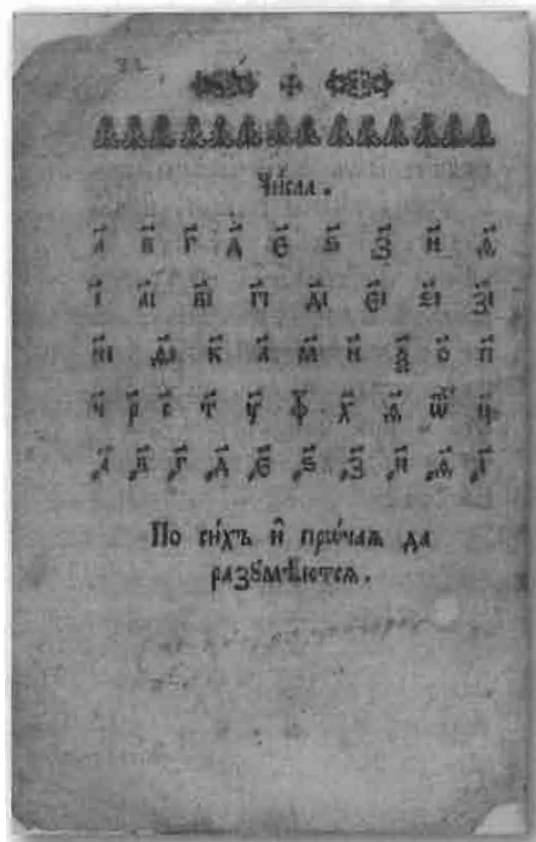 Чи́сла .
а҃ в҃ г҃ д҃ є҃ ѕ҃ з҃ и҃ ѳ҃
і҃ аі҃ ві҃ гі҃ ді҃ єі҃ ѕі҃ зі҃
иі҃ ѳі҃ к҃ л҃ м҃ н҃ ѯ҃ о҃ п҃
ч҃ р҃ с҃ т҃ у҃ ф҃ х҃ ѱ҃ ѿ҃ ц҃
҂а҃ ҂в҃ ҂г҃ ҂д҃ ҂є҃ ҂ѕ҃ ҂з҃ ҂и҃ ҂ѳ҃ ҂і҃
По си́хъ и҆ прѡ́чаѧ да
разꙋмѣ́ютсѧ .